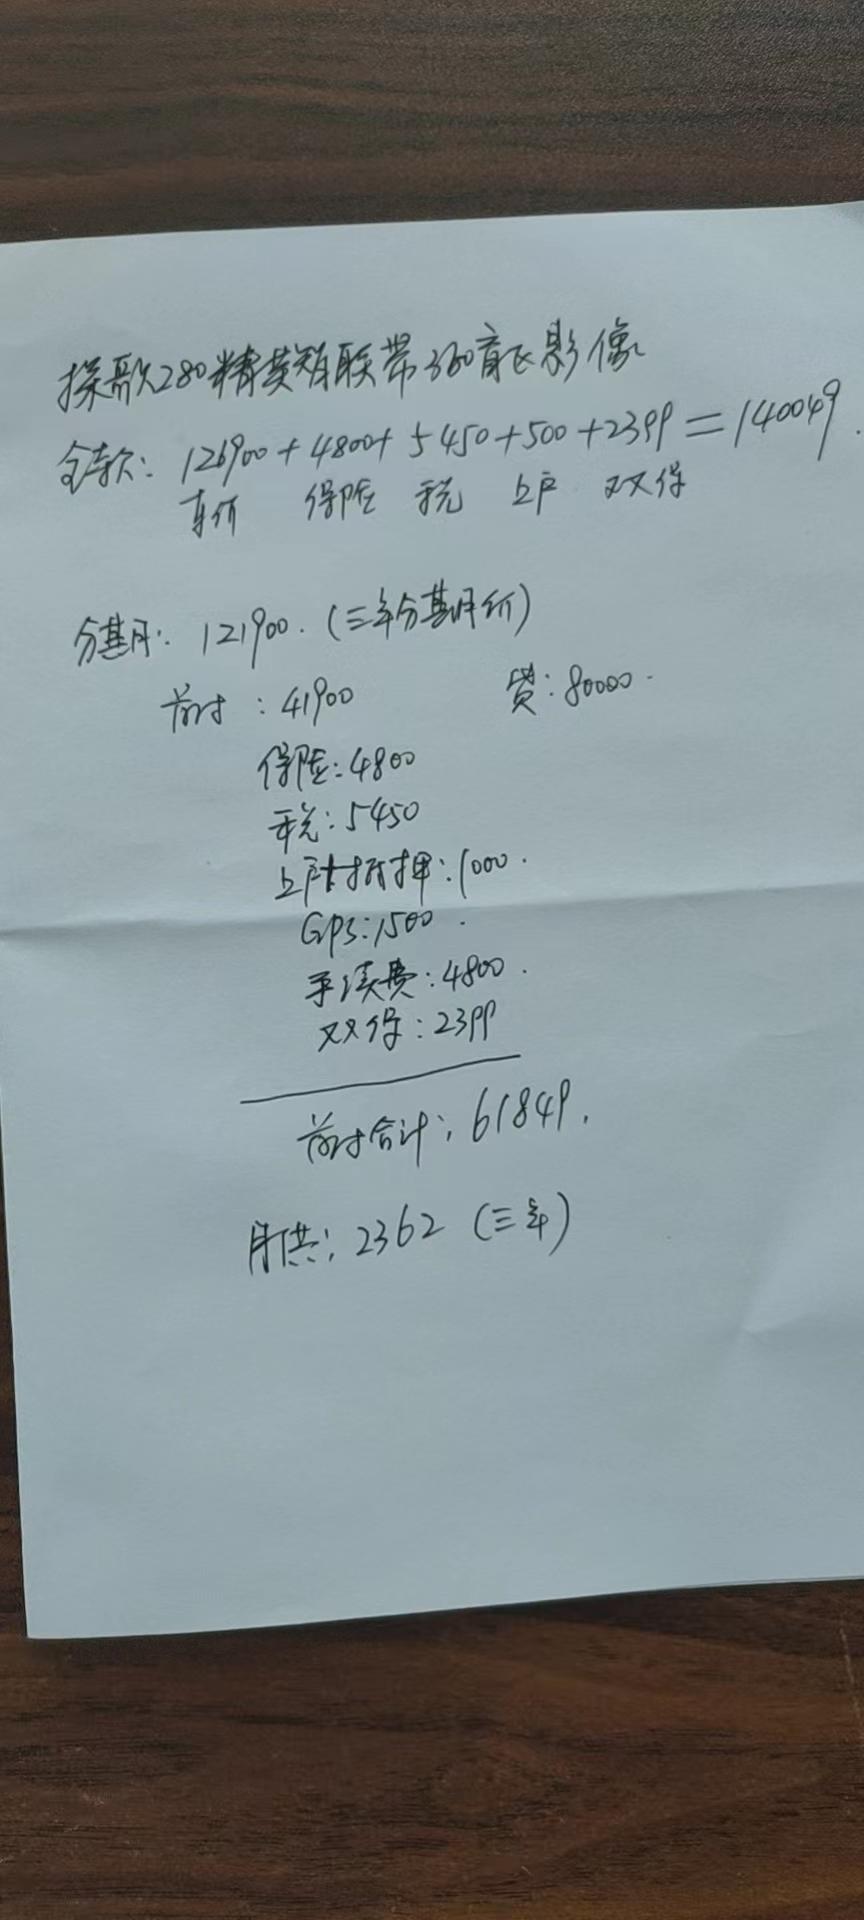 探歌280精英智联带360高飞影像
全款: 126900+4800+5450+500+2399=140049.
车价 保险 税 上户 双保
分期: 121900. (三年分期价)
首付: 41900 贷: 80000.
保险: 4800
税: 5450
上户+抵押: 1000.
GPS: 1500.
手续费: 4800.
双保: 2399
首付合计: 61849.
月供: 2362 (三年)